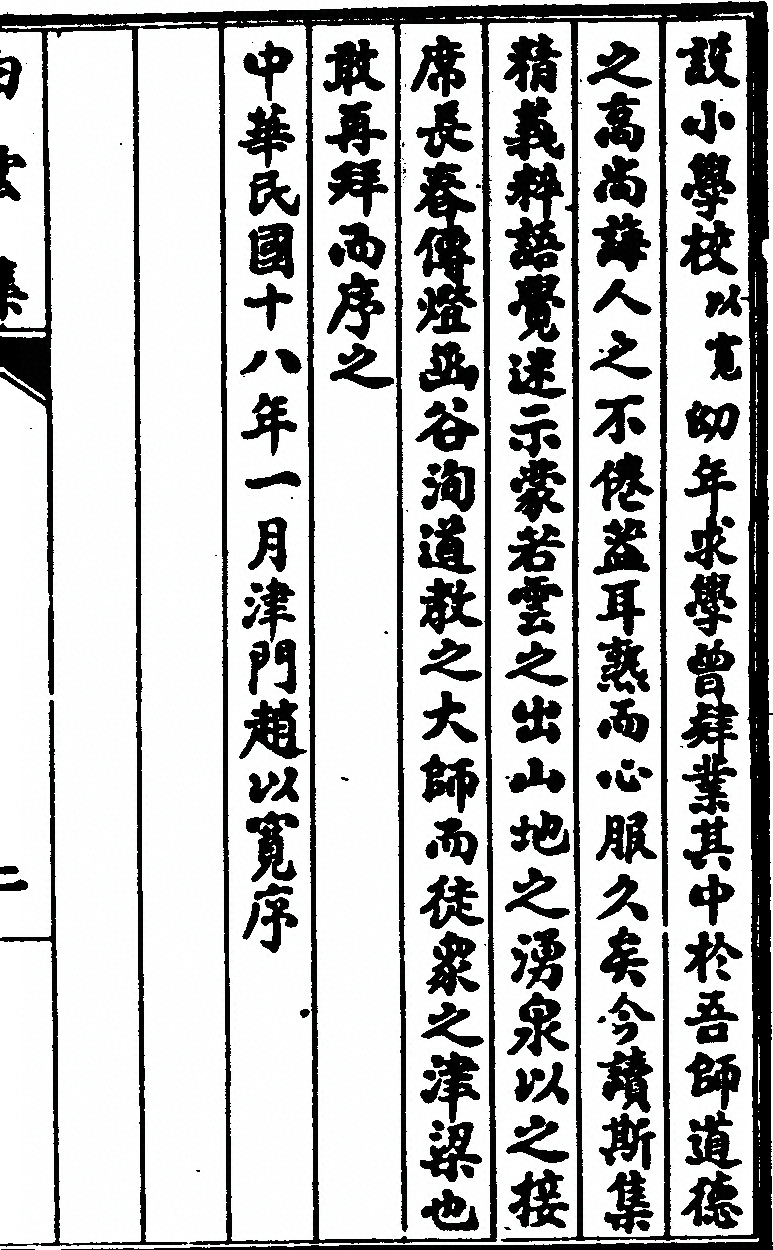 設小學校以寬幼年求學曾肄業其中於吾師道德
之高尚誨人之不倦蓋耳熟而心服久矣今讀斯集
精義粹語覺迷示蒙若雲之出山地之湧泉以之接
席長春傳燈函谷洵道教之大師而徒衆之津梁也
敢再拜而序之
中華民國十八年一月津門趙以寬序
白雲集
二